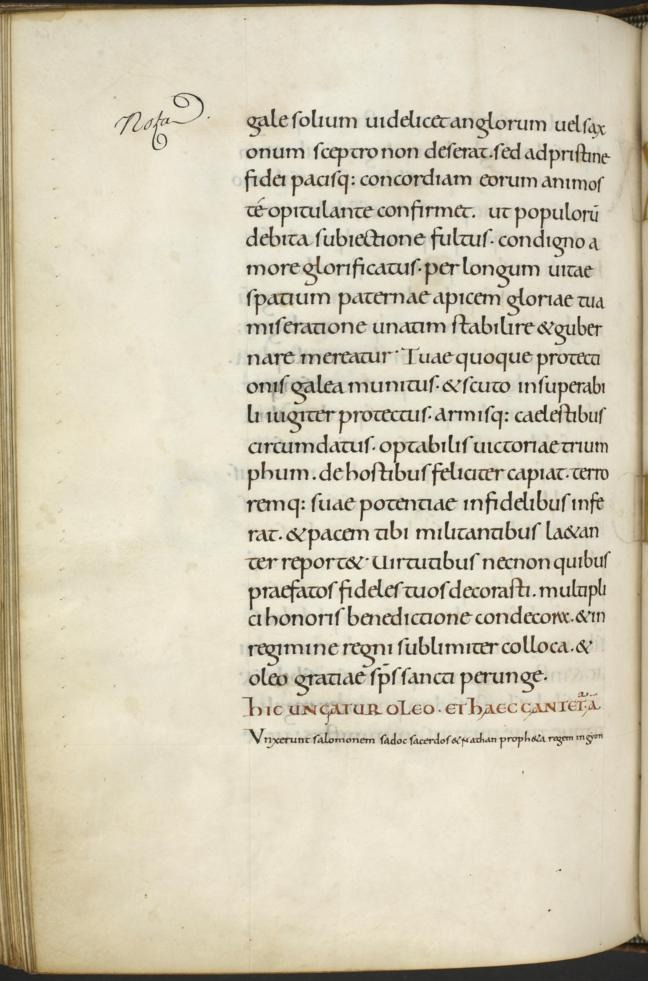 Nota
gale solium uidelicet anglorum uel sax
onum sceptro non deserat. sed ad pristine
fidei pacisq: concordiam eorum animos
té opitulante confirmet. ut populorū
debita subiectione fultus. condigno a
more glorificatus. per longum uitae
spatium paternae apicem gloriae tua
miseratione unatim stabilire &guber
nare mereatur. Tuae quoque protecti
onis galea munitus. &scuto insuperabi
li iugiter protectus. armisq: caelestibus
circumdatus. optabilis uictoriae trium
phum. de hostibus feliciter capiat. terro
remq: suae potentiae infidelibus infe
rat. &pacem tibi militantibus la&an
ter report&. Uirtutibus necnon quibus
praefatos fideles tuos decorasti. multipli
ci honoris benedictione condecora. &in
regimine regni sublimiter colloca. &
oleo gratiae sp̄s sancti perunge.
hIC UNGATUR OLEO. ET hAEC CANTET. A
Vnxerunt salomonem sadoc sacerdos &nathan proph&a regem in gyon